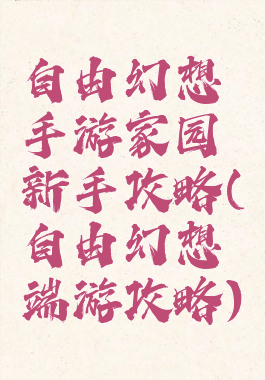 自由幻想
手游家园
新手攻略(
自由幻想
端游攻略)